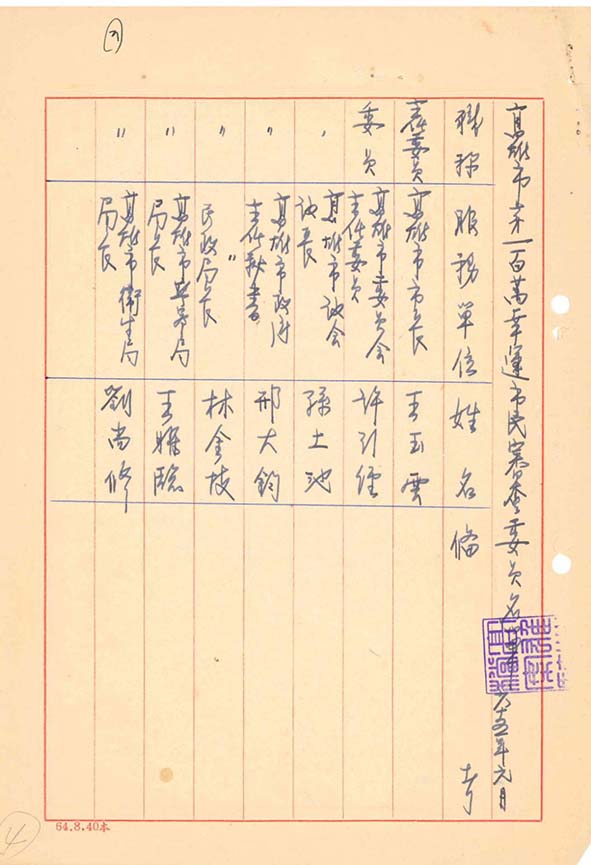 高雄市第一百萬幸運市民審查委員名單 六十五年元月
職稱 服務單位 姓名 備考
主任委員 高雄市市長 王玉雲
委員 高雄市委員會主任委員 許引經
〃 高雄市議會議長 孫土池
〃 高雄市政府主任秘書 邢大鈞
〃 〃 民政局長 林金枝
〃 高雄市警察局局長 王雅臨
〃 高雄市衛生局局長 劉尚修
64.8.40本
4